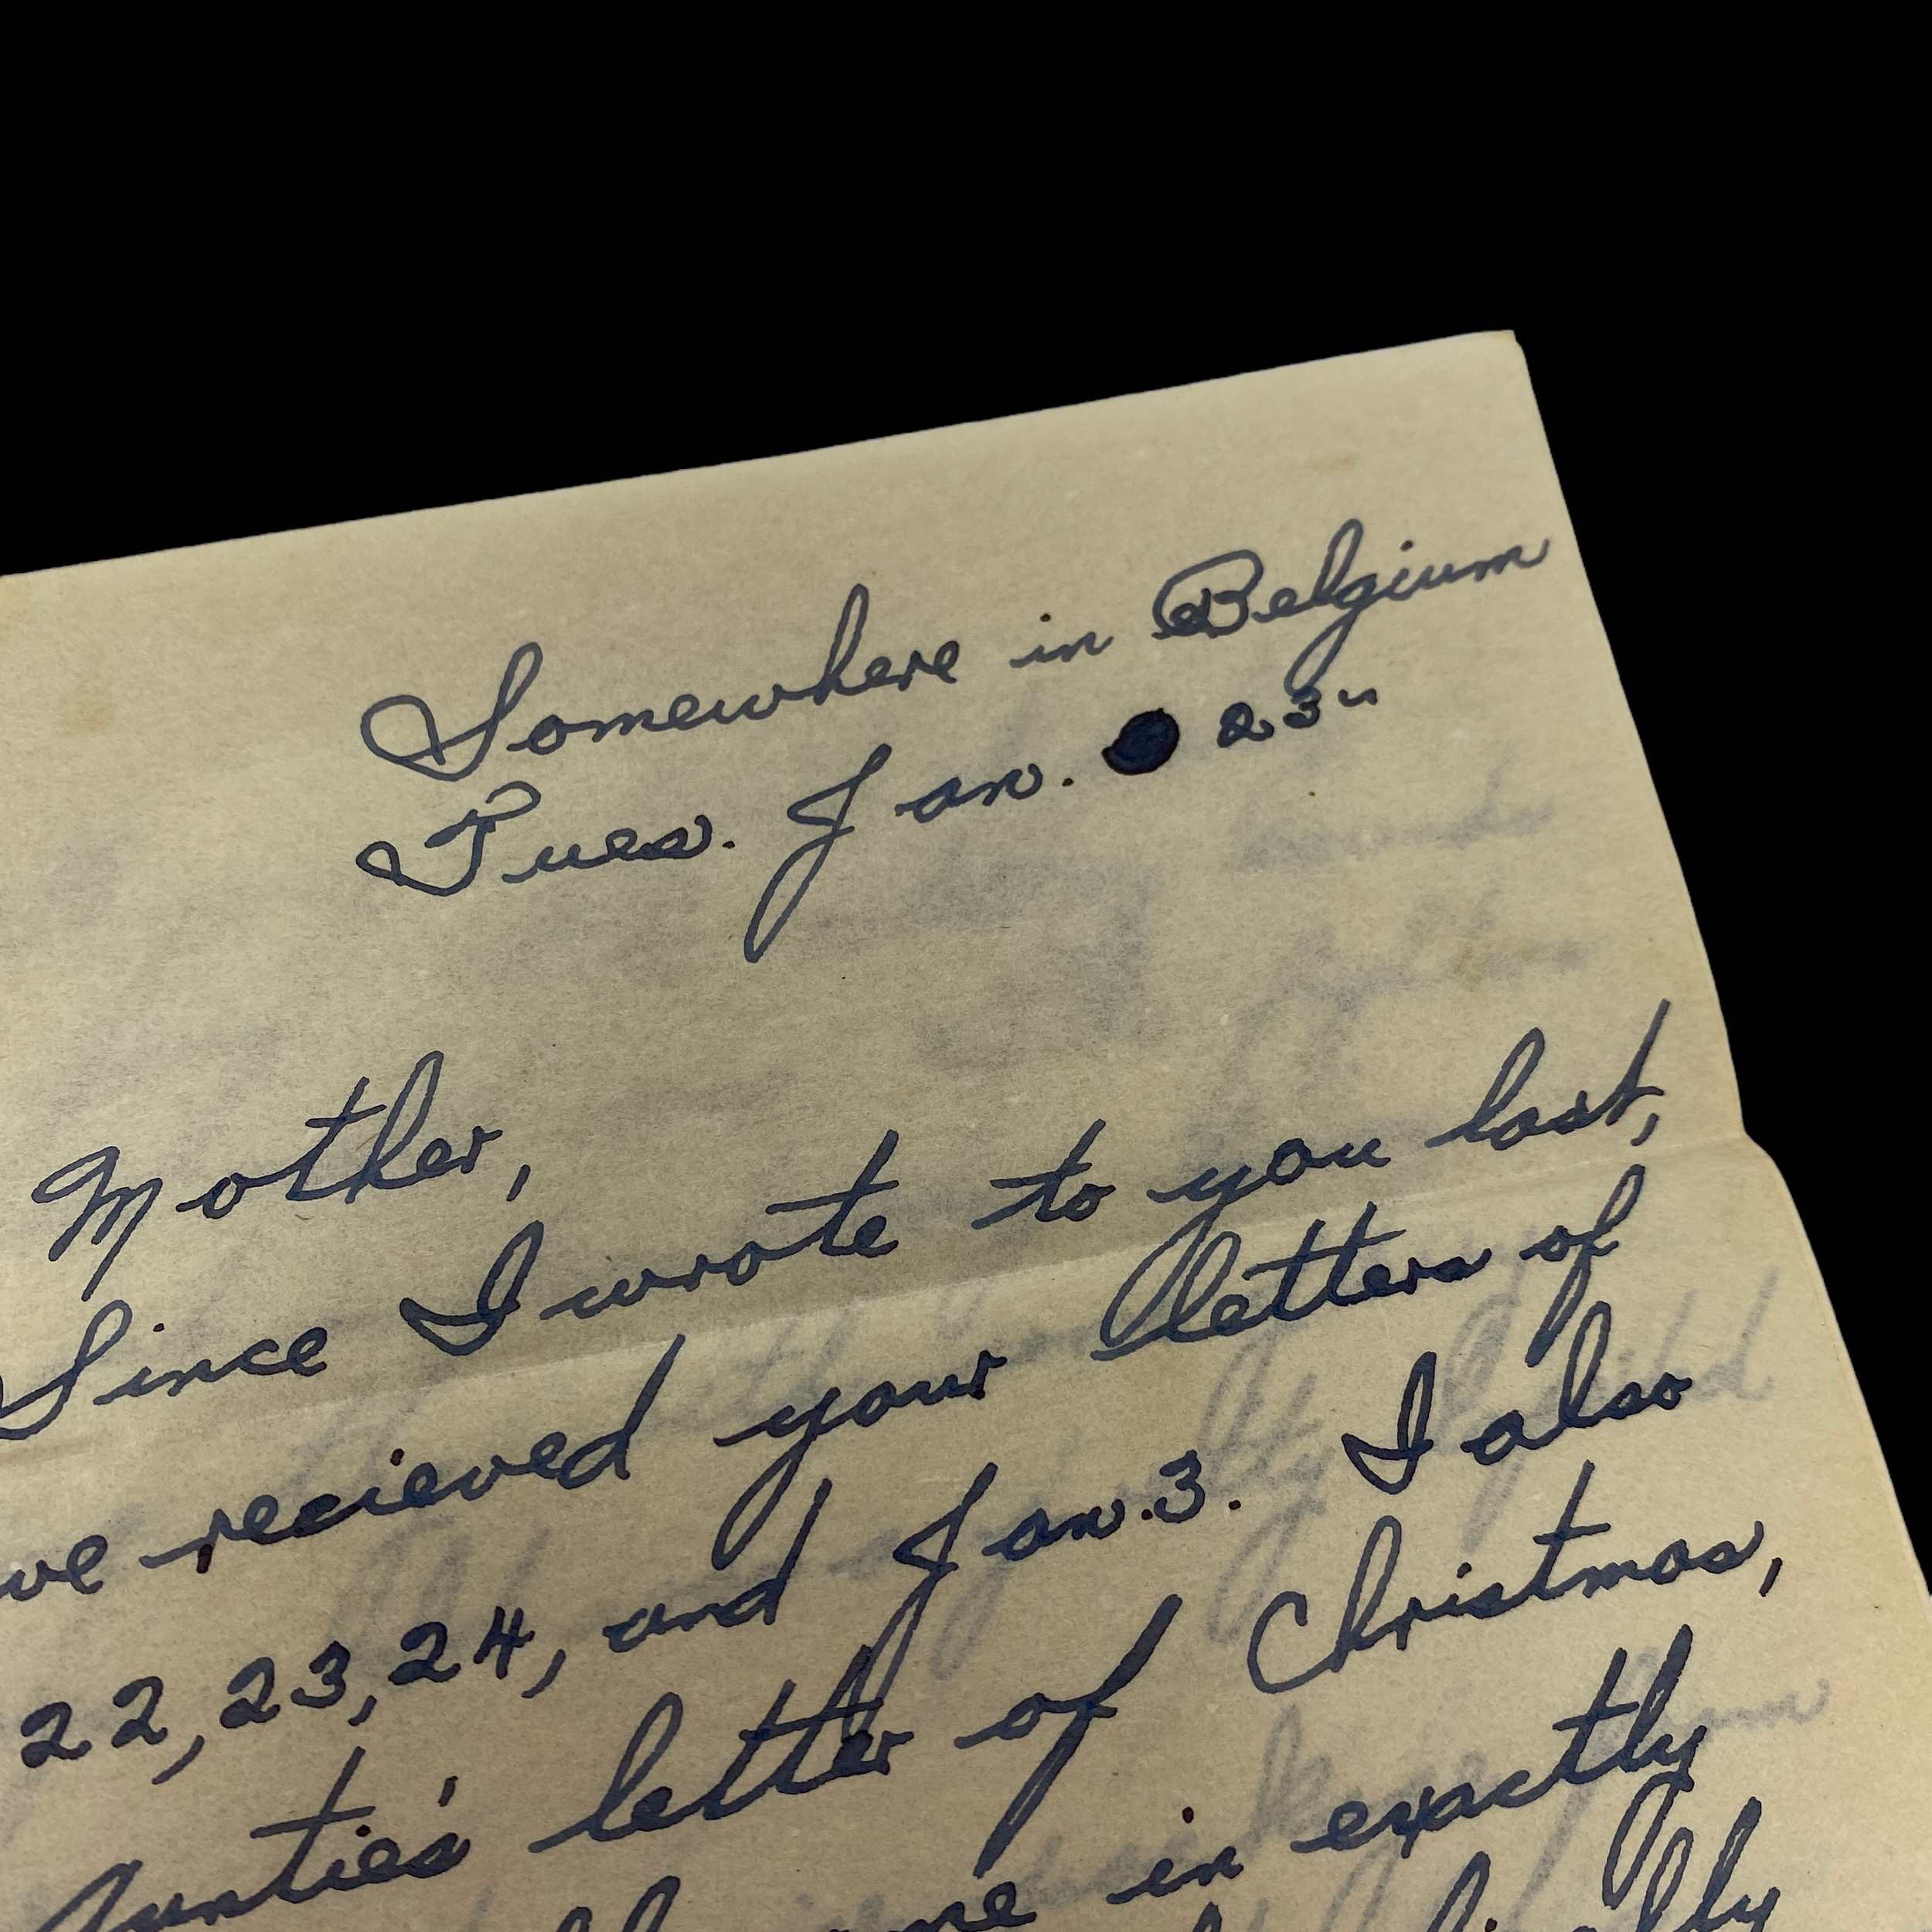 Somewhere in Belgium
Tues. Jan. 23"
Mother,
Since I wrote to you last,
ve recieved your letters of
22, 23, 24, and Jan. 3. I also
Auntie's letter of Christmas,
me in exactly